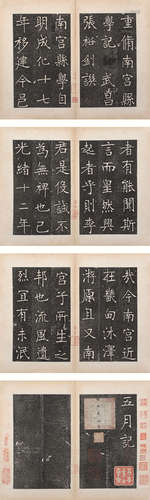 重脩南宮縣
學記 武昌
張裕釗譔
南宮縣學自
明成化十七
年移建今邑
者有能聞斯
言而然興
起者乎則李
君是役誠不
為無裨也已
光緒十二年
我今南宮近
在畿甸沐
原且又南
宮子所生之
邦也流風遺
烈宜有未泯
五月記